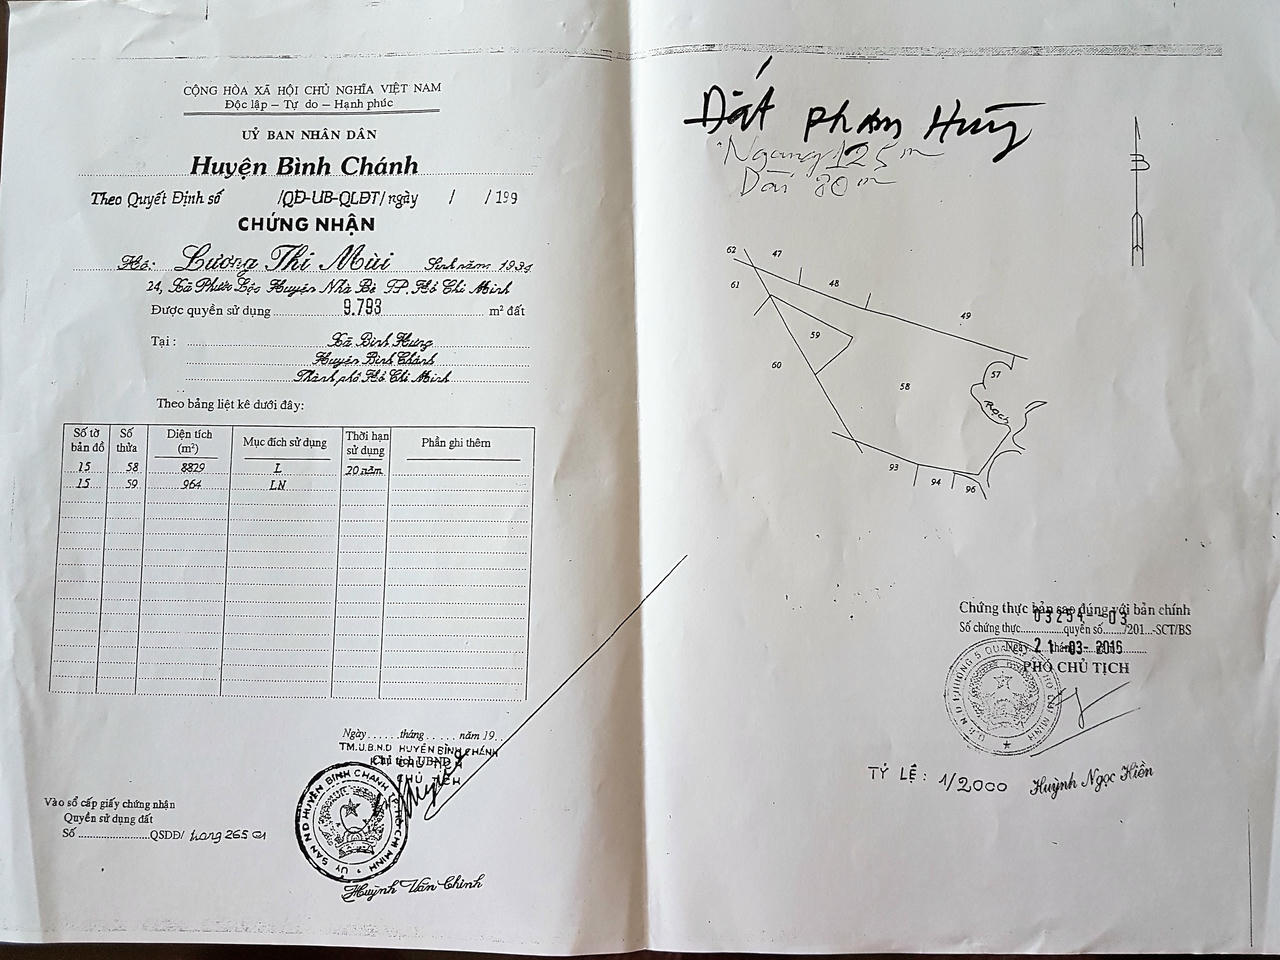 CỘNG HÒA XÃ HỘI CHỦ NGHĨA VIỆT NAM
Độc lập – Tự do – Hạnh phúc
UỶ BAN NHÂN DÂN
Huyện Bình Chánh
Theo Quyết Định số /QĐ-UB-QLĐT/ngày / /199
CHỨNG NHẬN
Hộ: Lương Thị Mùi Sinh năm 1931
24, Xã Phước Lộc Huyện Nhà Bè TP. Hồ Chí Minh
Được quyền sử dụng 9.793 m² đất
Tại : Xã Bình Hưng
Huyện Bình Chánh
Thành phố Hồ Chí Minh
Theo bảng liệt kê dưới đây:
Số tờ bản đồ Số thửa Diện tích (m²) Mục đích sử dụng Thời hạn sử dụng Phần ghi thêm
15 58 8829 L 20 năm
15 59 964 LN
Ngày......tháng......năm 19..
TM.U.B.N.D HUYỆN BÌNH CHÁNH
Chủ tịch UBND
CHỦ TỊCH
UỶ BAN N D HUYỆN BÌNH CHÁNH T.P HỒ CHÍ MINH
Vào sổ cấp giấy chứng nhận
Quyền sử dụng đất
Số ....................QSDĐ/ trang 265
Huỳnh Văn Chính
Đất phạm Hùng
Ngang 125 m
Dài 80 m
62 47
61 48
49
59
60 57
58
Rạch
93
94 96
Chứng thực bản sao đúng với bản chính
03254 -03
Số chứng thực..............quyển số......../201...-SCT/BS
Ngày 21 tháng -03- 2016
PHÓ CHỦ TỊCH
TỶ LỆ : 1/2000 Huỳnh Ngọc Hiền